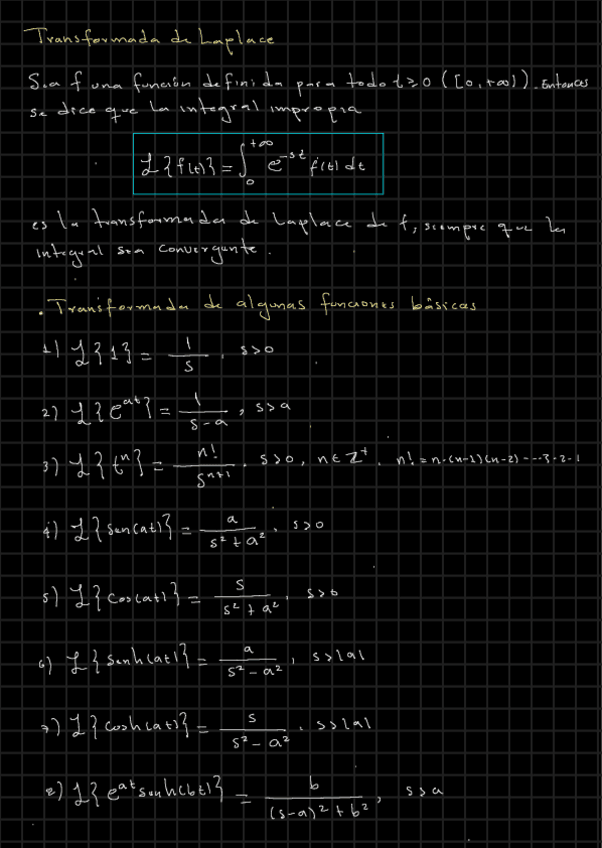 Transformada de Laplace
Sea f una función definida para todo t≥0 ([0,+∞)). Entonces
se dice que la integral impropia
ℒ{f(t)} = ∫₀^{+∞} e^{-st} f(t) dt
es la transformada de Laplace de f, siempre que la
integral sea convergente.
. Transformada de algunas funciones básicas
1) ℒ{1} = 1/s , s>0
2) ℒ{e^{at}} = 1/(s-a) , s>a
3) ℒ{t^n} = n!/s^{n+1} , s>0, n∈Z⁺. n! = n·(n-1)(n-2)····3·2·1
4) ℒ{sen(at)} = a/(s²+a²) , s>0
5) ℒ{cos(at)} = s/(s²+a²) , s>0
6) ℒ{senh(at)} = a/(s²-a²) , s>|a|
7) ℒ{cosh(at)} = s/(s²-a²) , s>|a|
8) ℒ{e^{at} senh(bt)} = b/((s-a)²+b²) , s>a